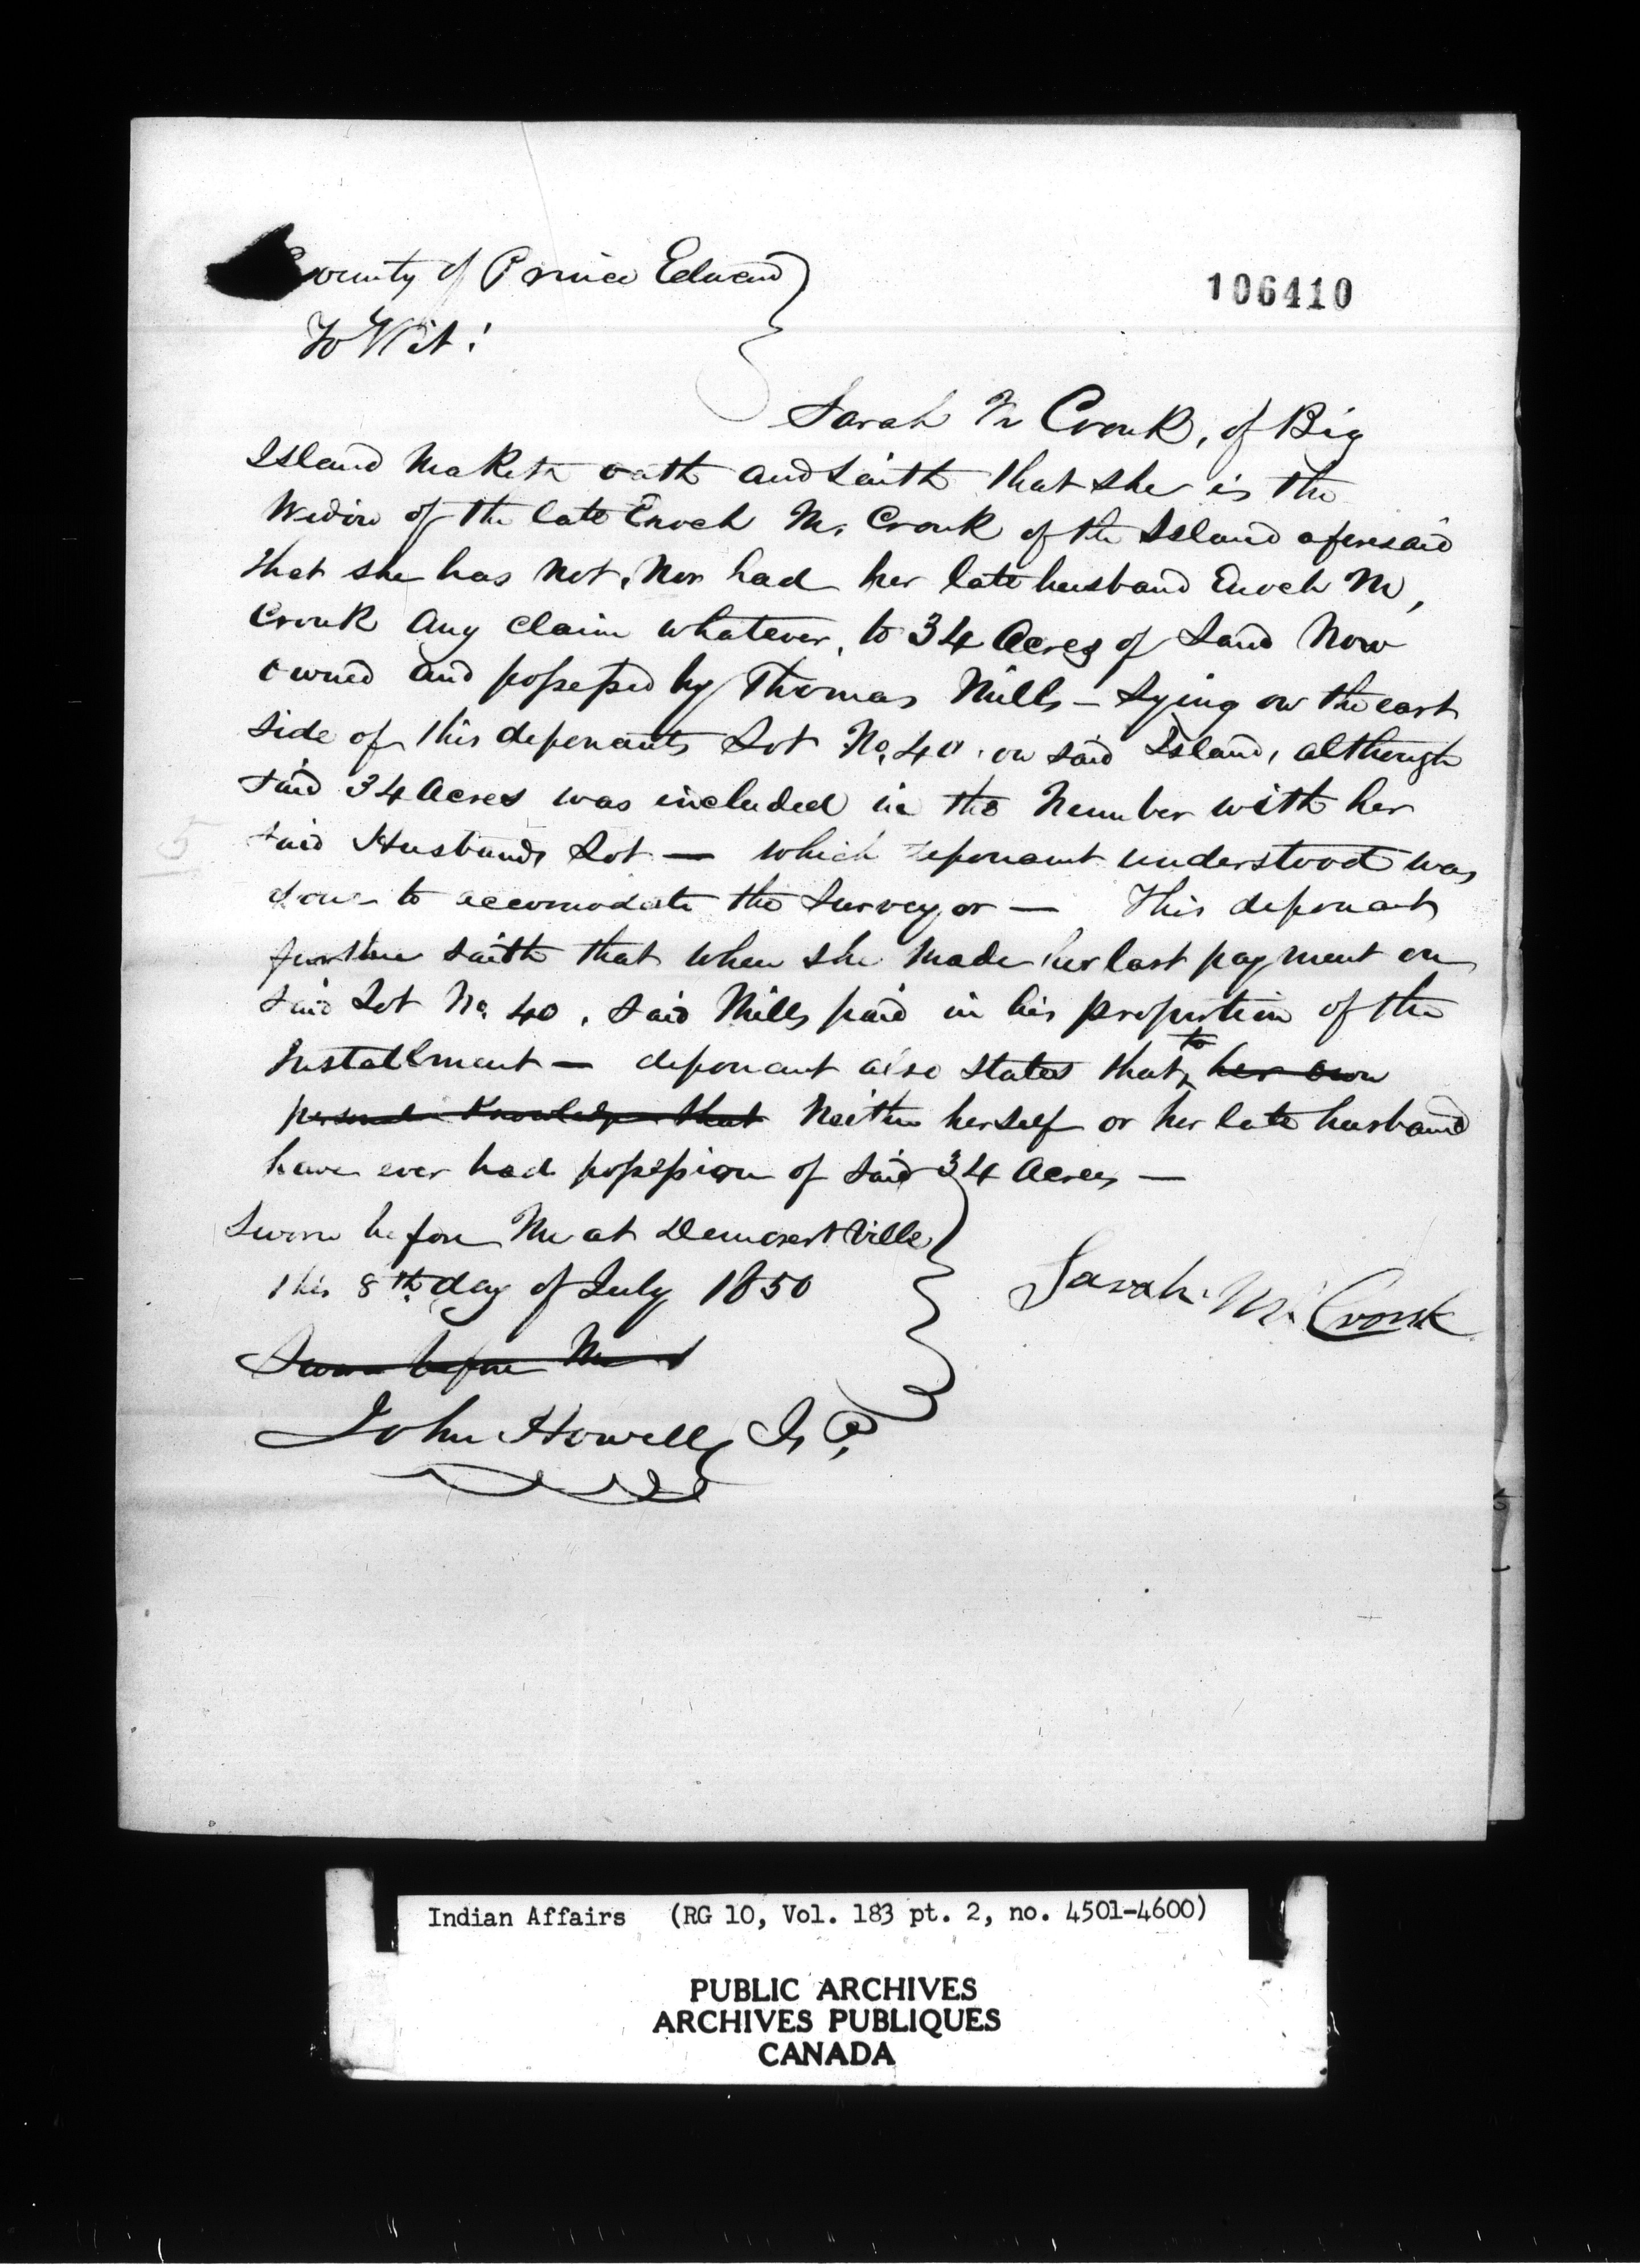 County of Prince Edward
106410
To Wit!
Sarah M Cronk, of Big
Island Maketh oath and Saith that she is the
Widow of the late Enoch M. Cronk of the Island aforesaid
that she has not, Nor had her late husband Enoch M,
Cronk Any claim whatever, to 34 Acres of Land Now
owned and possessed by Thomas Mills — Lying on the east
side of this deponants Lot No. 40 on said Island, although
said 34 Acres was included in the Number with her
said Husbands Lot — which deponant understood was
done to accomodate the Surveyor — This deponant
further saith that when she made her last payment on
said Lot No. 40, said Mills paid in his proportion of the
Installment — deponant also states that to her own
personal Knowledge that Neither herself or her late husband
have ever had possession of said 34 Acres —
Sworn before Me at Demorestville
this 8th day of July 1850
Sarah M. Cronk
Sworn before Me
John Howell J, P,
Indian Affairs (RG 10, Vol. 183 pt. 2, no. 4501-4600)
PUBLIC ARCHIVES
ARCHIVES PUBLIQUES
CANADA